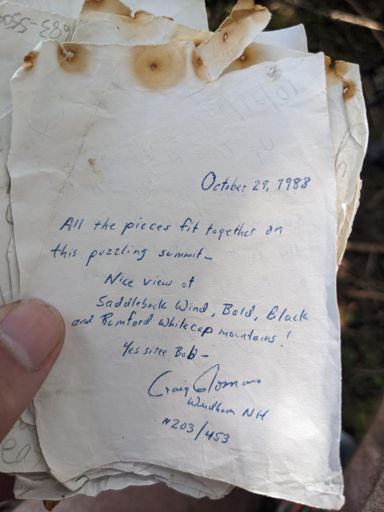 683-550
October 29, 1988
All the pieces fit together on
this puzzling summit-
Nice view of
Saddleback Wind, Bald, Black
and Rumford Whitecap mountains!
Yes siree Bob-
Craig
Windham NH
#203/453